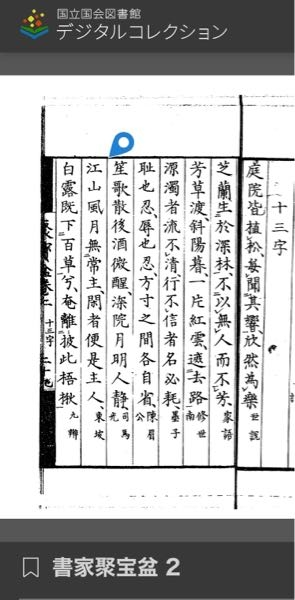 国立国会図書館
デジタルコレクション
十三字
庭院皆植松每聞其響欣然為樂 世說
芝蘭生於深林不以無人而不芳 家語
芳草渡斜陽暮一片紅雲遮去路 修世南
源濁者流不清行不信者名必耗 墨子
耻也忍辱也忍方寸之間各自省 陳眉公
笙歌散後酒微醒深院月明人靜 司馬光
江山風月無常主閑者便是主人 東坡
白露既下百草兮奄離披此梧楸 九辯
十三字
書家聚宝盆 2